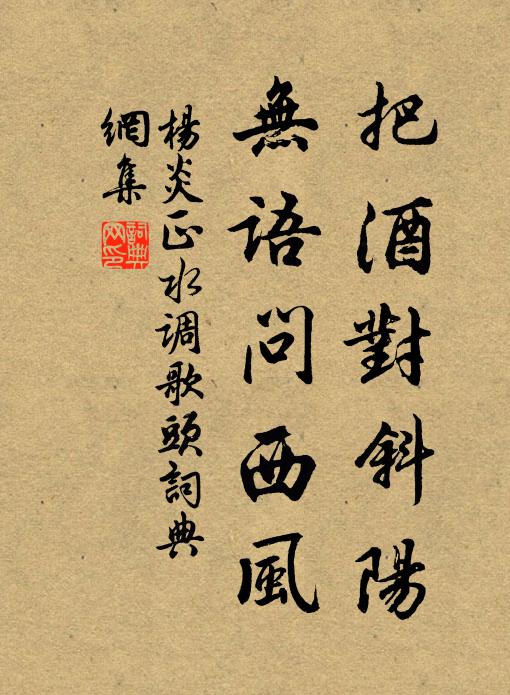 把酒對斜陽
無語問西風
楊炎正水调歌頭詞典
網集
詞典
网印